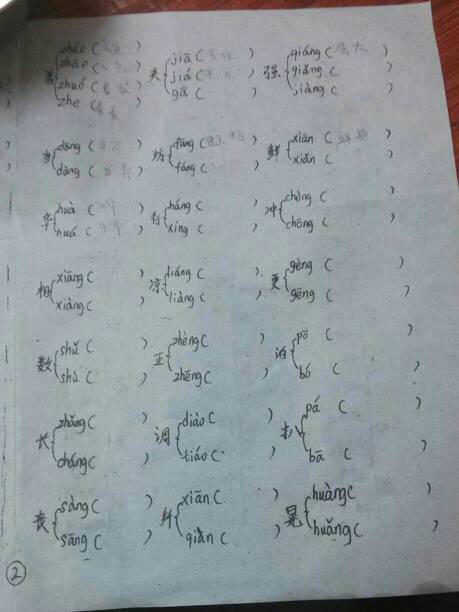 zháo ( ) jiā ( ) qiáng (强大)
zhāo ( ) 夹 jiá ( ) 强 qiǎng ( )
着 zhuó ( ) gā ( ) jiàng ( )
zhe ( )
dāng ( ) fāng ( ) xiān (鲜艳)
当 坊 鲜
dàng ( ) fáng ( ) xiǎn ( )
huà ( ) háng ( ) chòng ( )
华 行 冲
huá ( ) xíng ( ) chōng ( )
xiāng ( ) liáng ( ) gèng ( )
相 凉 更
xiàng ( ) liàng ( ) gēng ( )
shǔ ( ) zhèng ( ) pō ( )
数 正 泊
shù ( ) zhēng ( ) bó ( )
zhǎng ( ) diào ( ) pá ( )
长 调 扒
cháng ( ) tiáo ( ) bā ( )
sàng ( ) xiān ( ) huàng ( )
丧 纤 晃
sāng ( ) qiàn ( ) huǎng ( )
②